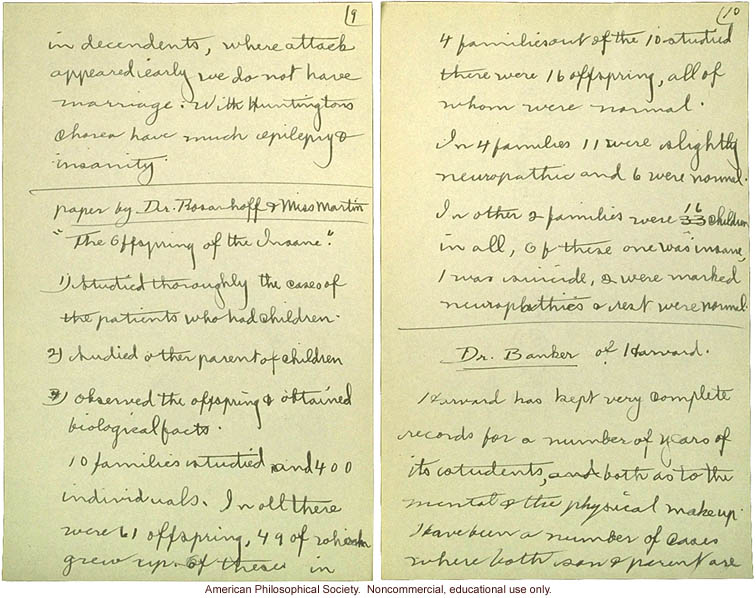 9
in decendents, where attack
appeared early we do not have
marriage. With Huntingtons
chorea have much epilepsy &
insanity
paper by Dr. Rosanhoff & Miss Martin
"The Offspring of the Insane".
1) Studied thoroughly the cases of
the patients who had children.
2) Studied other parent of children
3) observed the offspring & obtained
biological facts.
10 families studied and 400
individuals. In all there
were 61 offspring, 49 of which
grew up. Of these in
10
4 families out of the 10 studied
there were 16 offspring, all of
whom were normal.
In 4 families 11 were slightly
neuropathic and 6 were normal.
In other 2 families were 33 16 children
in all, Of these one was insane,
1 was suicide, 2 were marked
neuropathics & rest were normal.
Dr. Banker of Harvard.
Harvard has kept very complete
records for a number of years of
its students, and both as to the
mental & the physical make up.
Have been a number of cases
where both son & parent are
American Philosophical Society. Noncommercial, educational use only.